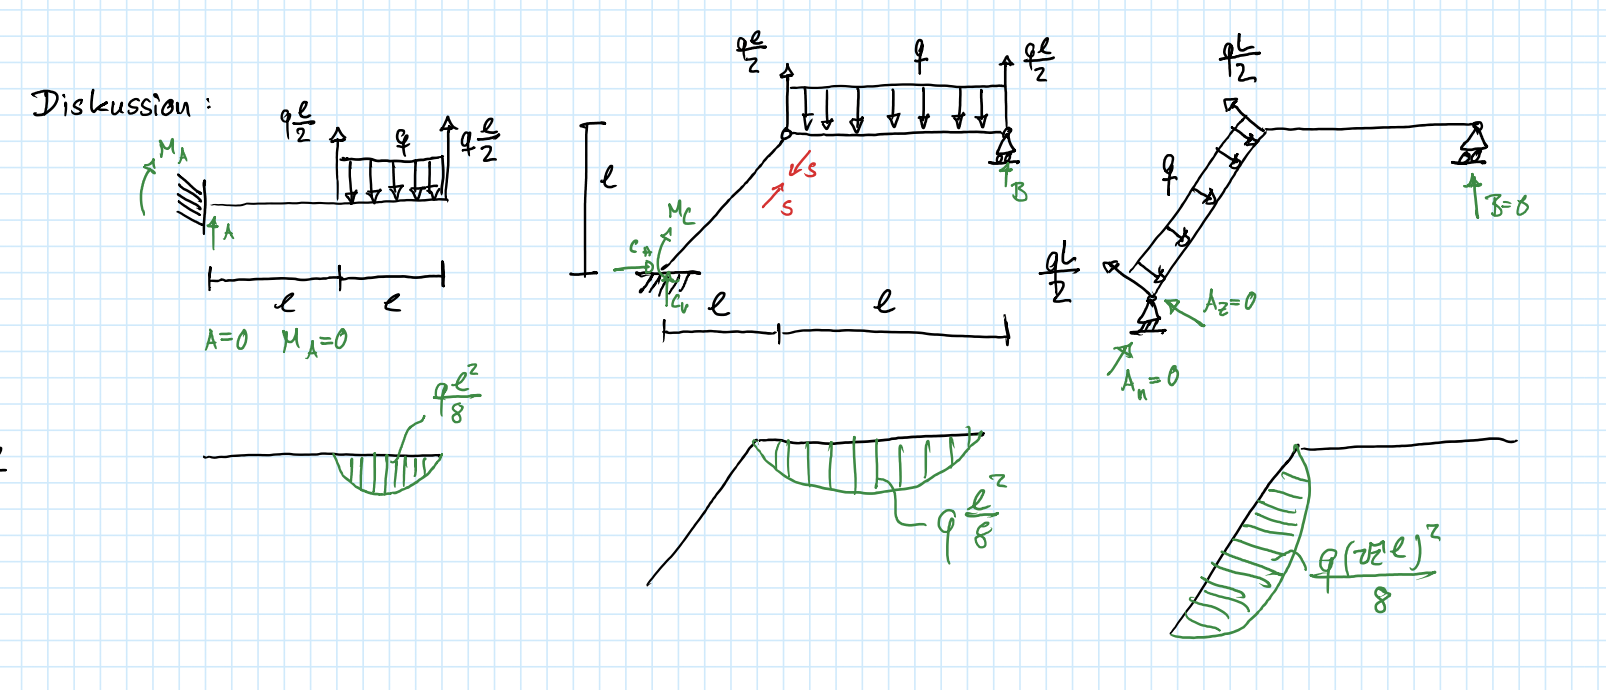 Diskussion:
M_A
q l/2
q
q l/2
A
l
l
A=0 M_A=0
q l²/8
q l/2
q
q l/2
l
S
S
B
M_C
C_H
C_V
l
l
q l²/8
qL/2
q
qL/2
B=0
A_z=0
A_n=0
q(√2 l)²/8